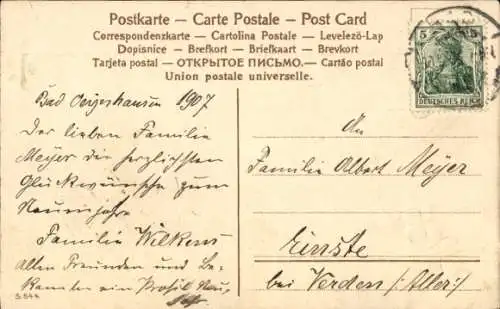 Postkarte — Carte Postale — Post Card
Correspondenzkarte — Cartolina Postale — Levelező-Lap
Dopisnice — Brefkort — Briefkaart — Brevkort
Tarjeta postal — ОТКРЫТОЕ ПИСЬМО. — Cartão postal
Union postale universelle.
5 5
DEUTSCHES REICH
Bad Oeynhausen 1907
Der lieben Familie
Meyer die herzlichsten
Glückwünsche zum
Neuenjahre
Familie Wilkens
Allen Freunden und Be-
kannten ein Prosit Neu-
S. 544
An
Familie Albert Meyer
Einste
bei Verden /:Aller:/